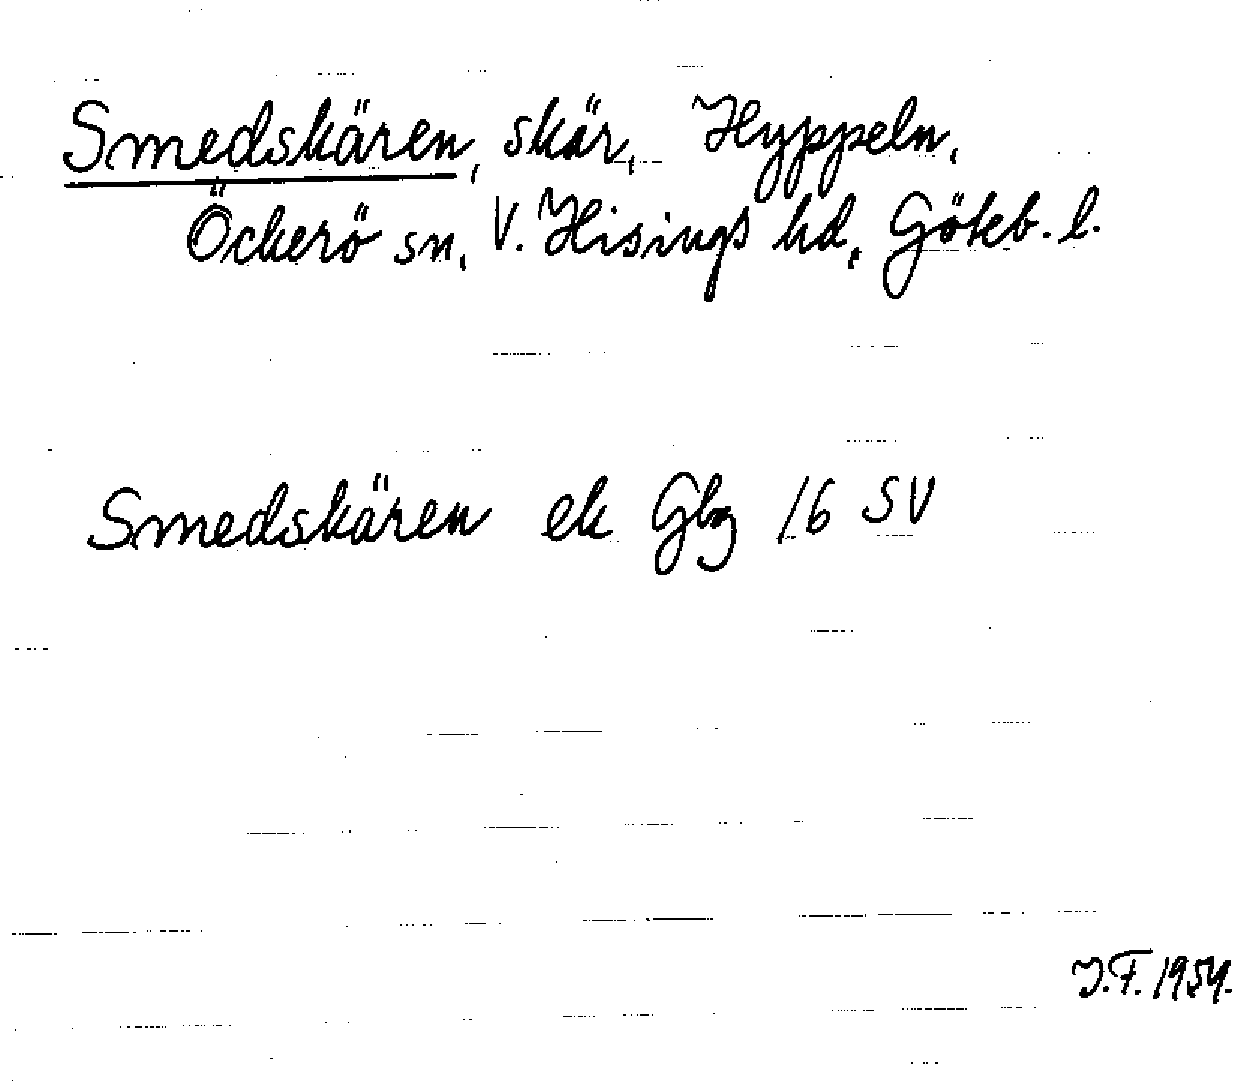 Smedskären, skär, Hyppeln,
Öckerö sn, V. Hisings hd, Göteb. l.
Smedskären ek Gbg 16 SV
I.F. 1954.